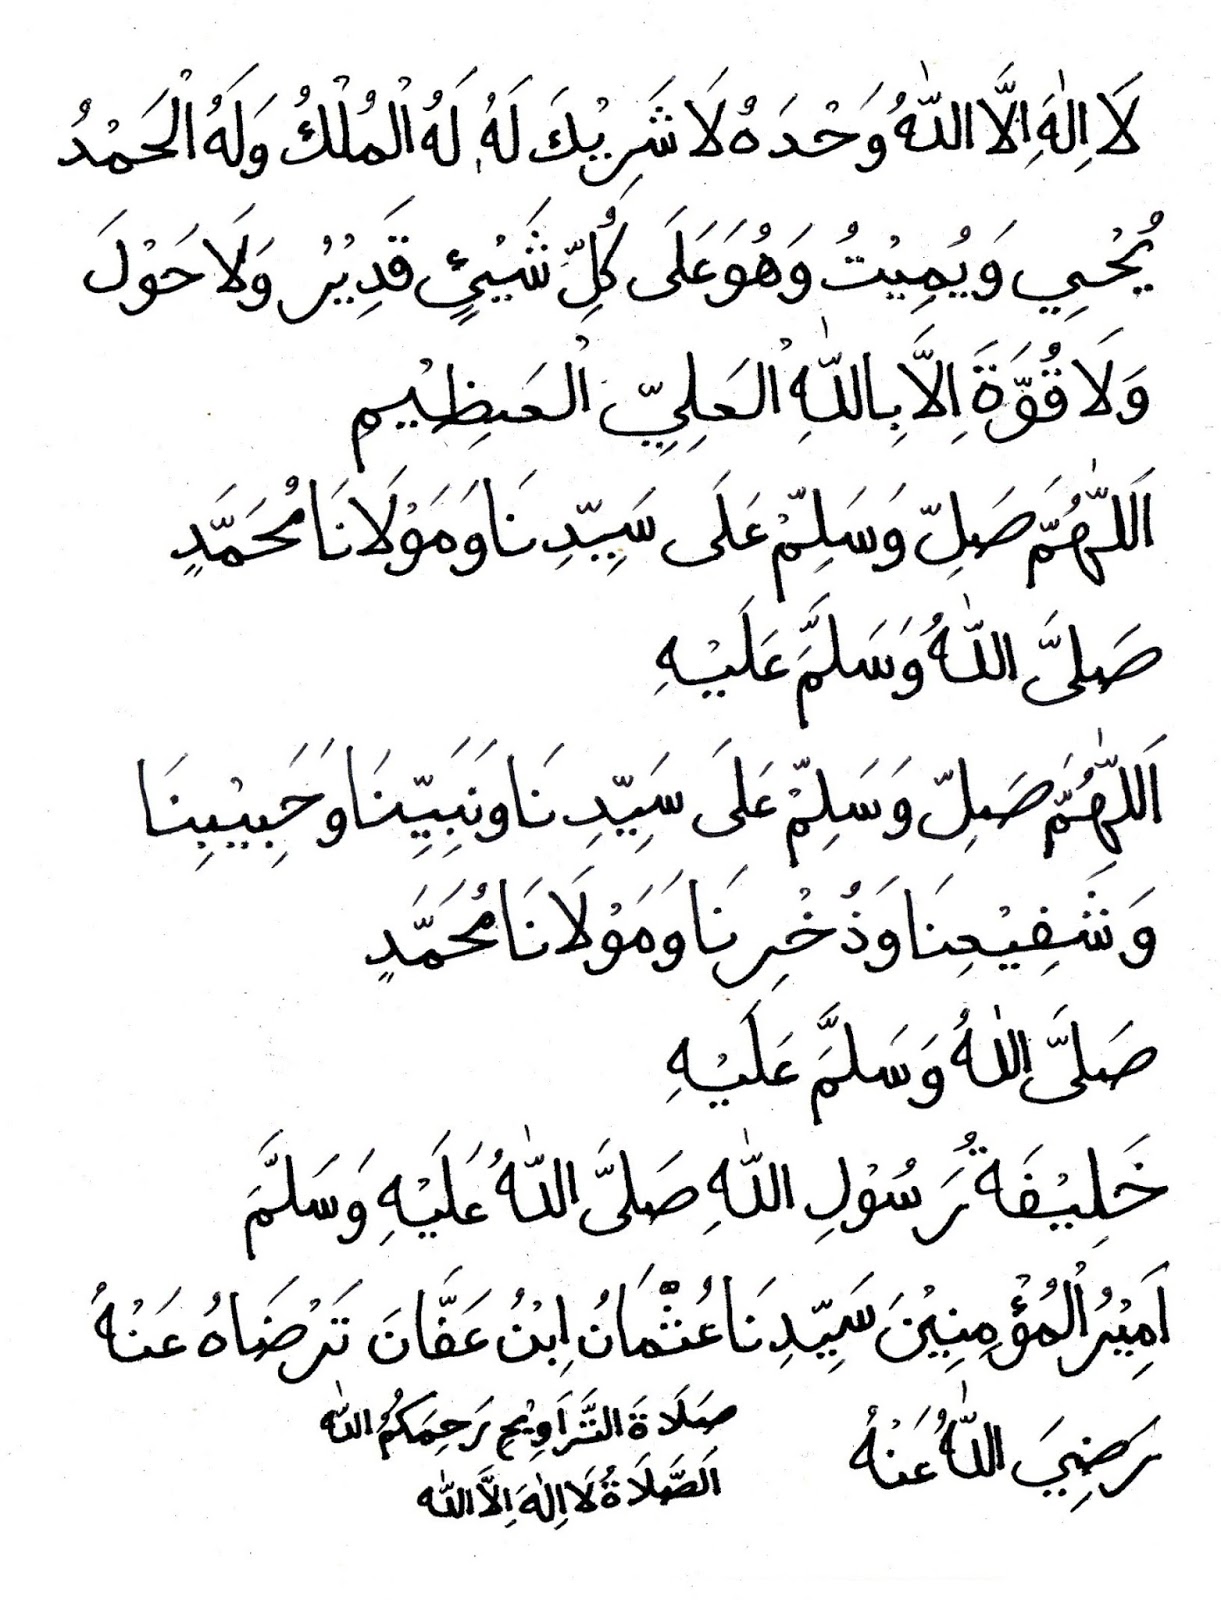 لَا اِلٰهَ اِلَّا اللّٰهُ وَحْدَهُ لَا شَرِيْكَ لَهُ، لَهُ الْمُلْكُ وَلَهُ الْحَمْدُ
يُحْيِي وَيُمِيْتُ وَهُوَ عَلَى كُلِّ شَيْئٍ قَدِيْرُ وَلَا حَوْلَ
وَلَا قُوَّةَ اِلَّا بِاللّٰهِ الْعَلِيِّ الْعَظِيْمِ
اَللّٰهُمَّ صَلِّ وَسَلِّمْ عَلَى سَيِّدِنَا وَمَوْلَانَا مُحَمَّدٍ
صَلىَّ اللّٰهُ وَسَلَّمَ عَلَيْهِ
اَللّٰهُمَّ صَلِّ وَسَلِّمْ عَلَى سَيِّدِنَا وَنَبِيِّنَا وَحَبِيْبِنَا
وَشَفِيْعِنَا وَذُخْرِنَا وَمَوْلَانَا مُحَمَّدٍ
صَلىَّ اللّٰهُ وَسَلَّمَ عَلَيْهِ
خَلِيْفَةُ رَسُوْلِ اللّٰهِ صَلىَّ اللّٰهُ عَلَيْهِ وَسَلَّمَ
اَمِيْرُ الْمُؤْمِنِيْنَ سَيِّدِنَا عُثْمَانُ اِبْنُ عَفَّانَ تَرْضَاهُ عَنْهُ
رَضِيَ اللّٰهُ عَنْهُ
صَلَاةَ التَّرَاوِيْحِ رَحِمَكُمُ اللّٰه
اَلصَّلَاةُ لَا اِلٰهَ اِلَّا اللّٰه